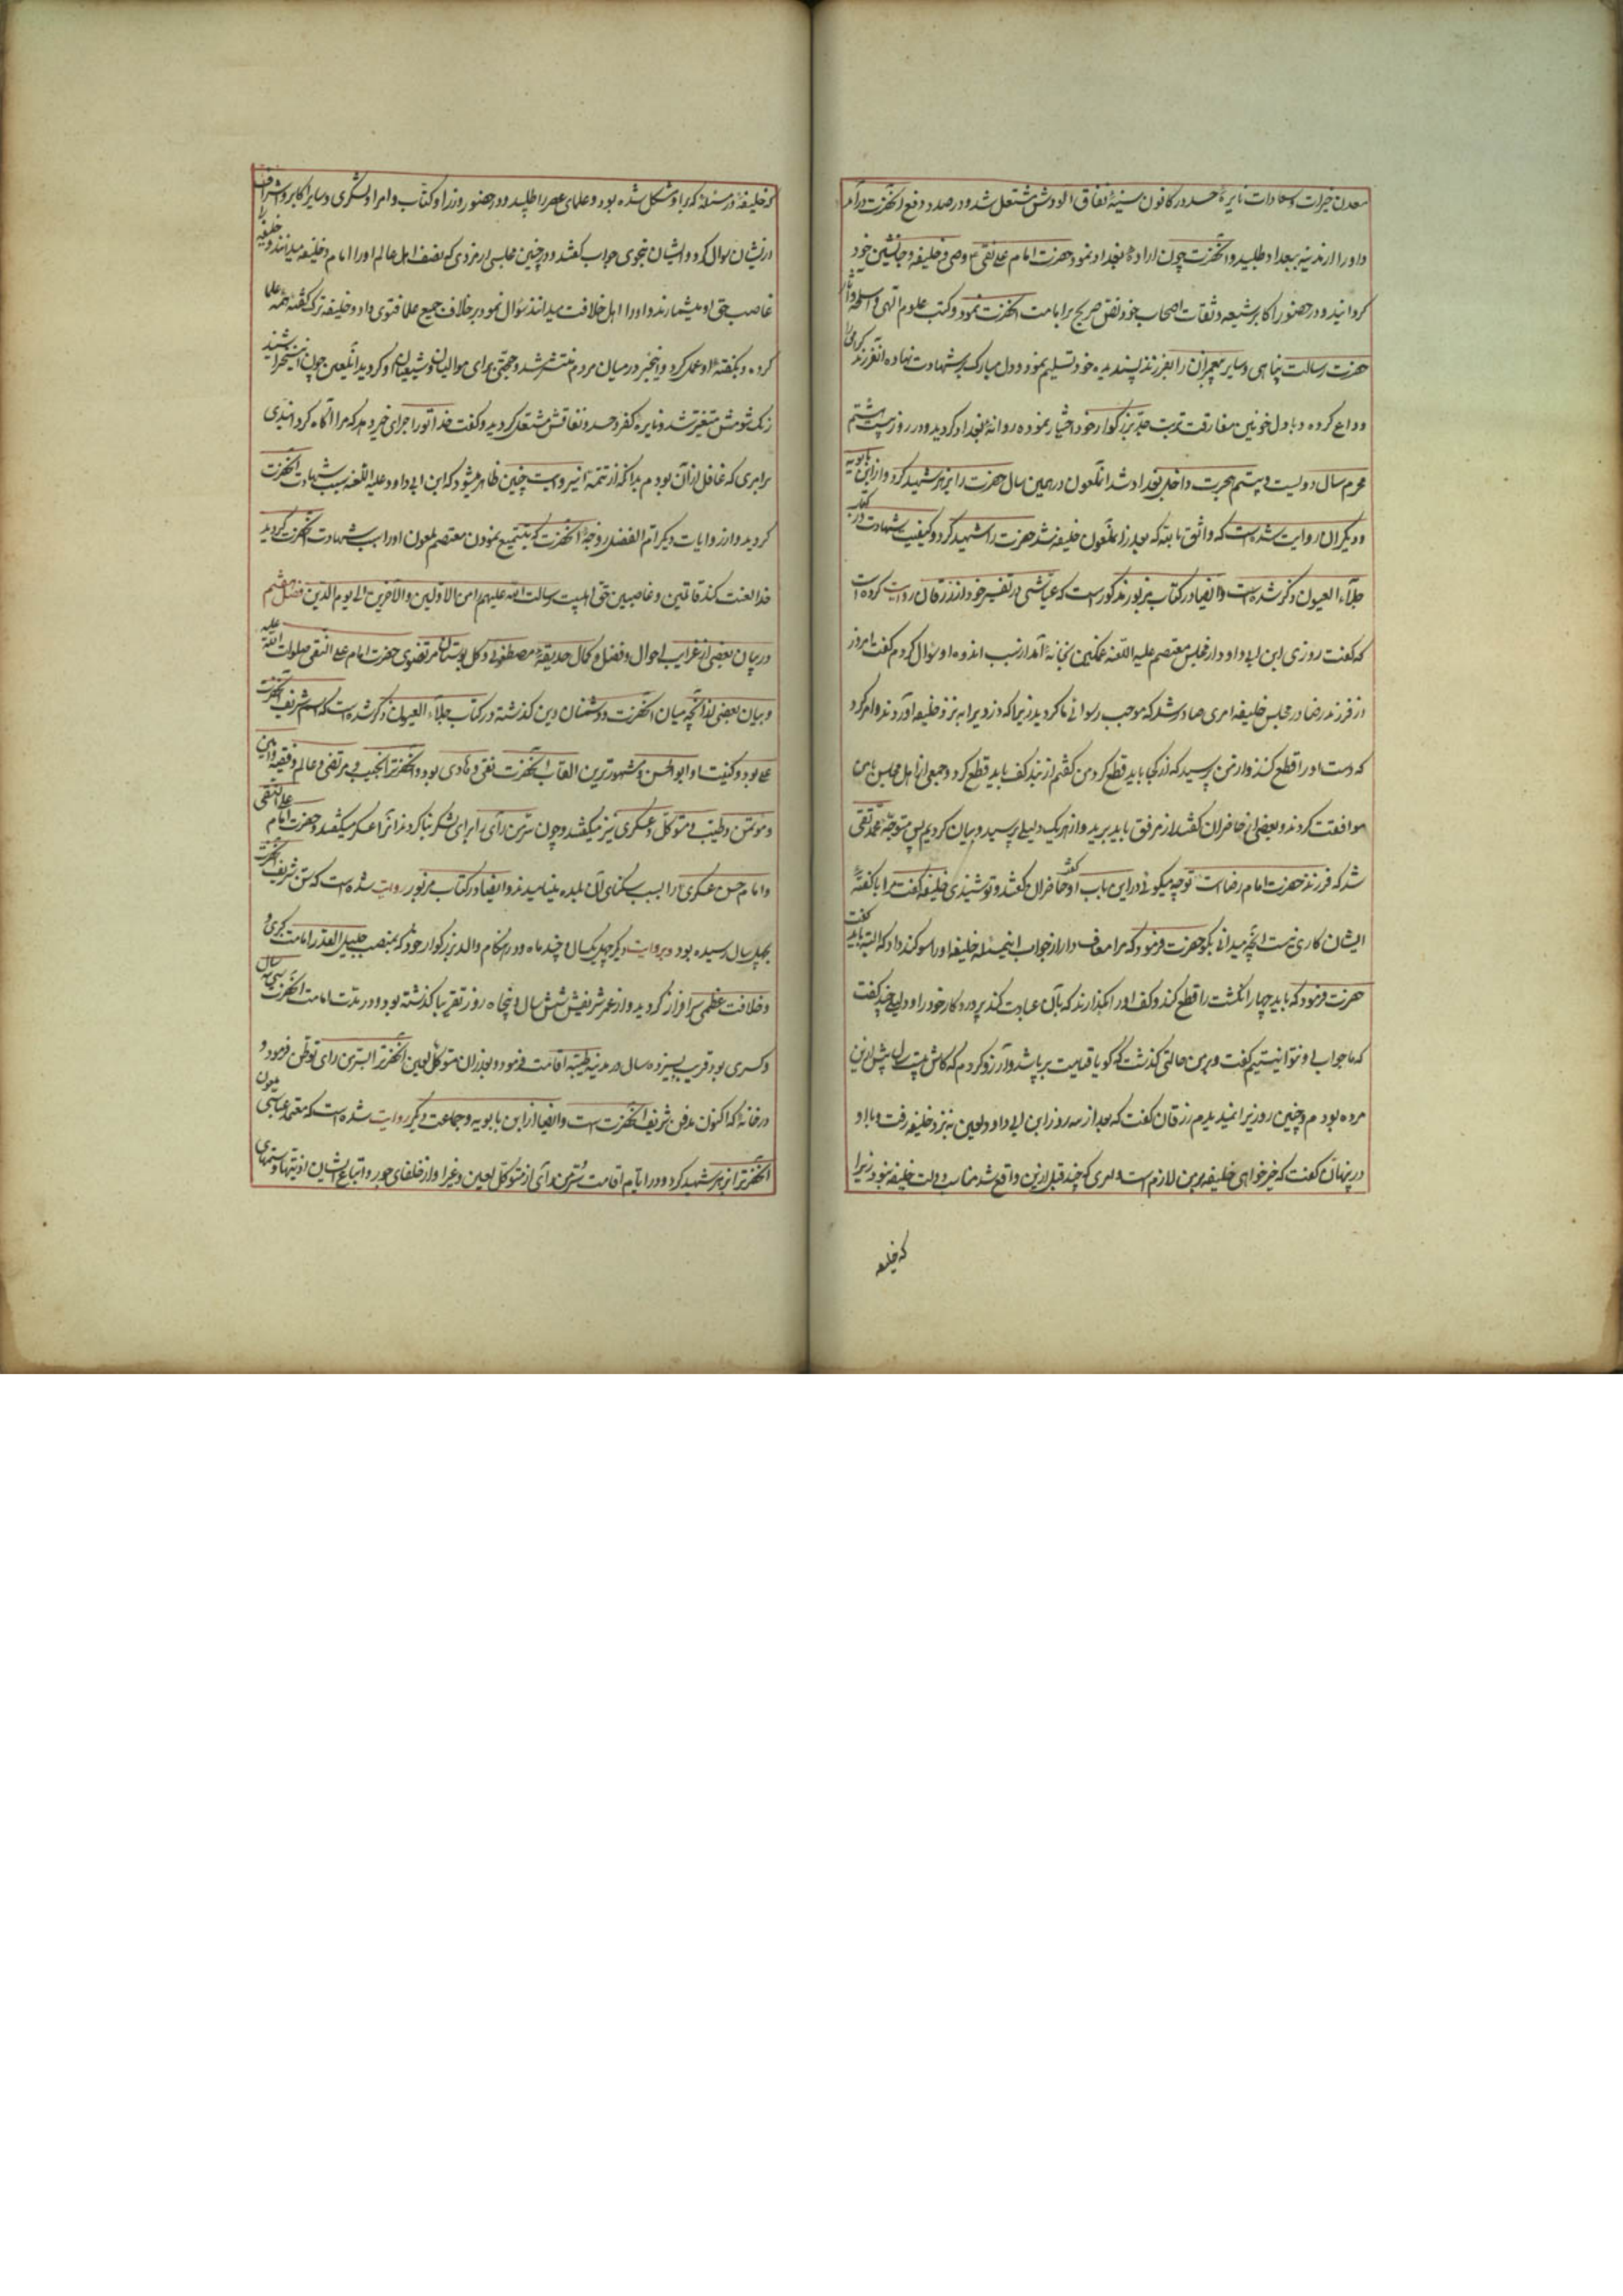 معدن خیرات و سعادات نایرهٔ حسد در کانون سینهٔ نفاق آلودش مشتعل شد و در صدد دفع آنحضرت درآمد
و او را از مدینه ببغداد طلبید و آنحضرت چون ارادهٔ بغداد نمود حضرت امام علی نقی ع وصی و خلیفه و جانشین خود
گردانید و در حضور اکابر شیعه و ثقات اصحاب خود نص صریح بر امامت آنحضرت نمود و کتب علوم الهی و اسلحه و آثار
حضرت رسالت پناهی و سایر پیغمبران را بفرزند پسندیده خود تسلیم نمود و دل مبارک بر شهادت نهاده آنفرزند گرامی را
وداع کرده و با دل خونین مفارقت تربت جد بزرگوار خود اختیار نموده روانهٔ بغداد گردید و در روز بیست هشتم
محرم سال دویست و بیستم هجرت داخل بغداد شد آنملعون در همین سال حضرت را بزهر شهید کرد و از ابن بابویه
و دیگران روایت شده است که واثق بالله که بعد از آنملعون خلیفه شد حضرت را شهید کرد و کیفیت شهادت در کتاب
جلاء العیون ذکر شده است و ایضا در کتاب مزبور مذکور است که عیاشی در تفسیر خود از زرقان روایت کرده است
که گفت روزی ابن ابی داود از مجلس معتصم علیه اللعنه غمگین بخانه آمد از سبب اندوه او سؤال کردم گفت امروز
از فرزند رضا در مجلس خلیفه امری صادر شد که موجب رسوائی ما گردید زیرا که دزدی را به نزد خلیفه آوردند و امر کرد
که دست او را قطع کنند و از من پرسید که از کجا باید قطع کرد من گفتم از بند کف باید قطع کرد و جمعی از اهل مجلس با من
موافقت کردند و بعضی از حاضران گفتند از مرفق باید برید و از هر یک دلیلی پرسید و بیان کردیم پس متوجه محمد تقی
شد که فرزند حضرت امام رضا است توجه میگوئی در این باب او گفت حاضران گفتند و تو شنیدی خلیفه گفت مرا با گفتهٔ
ایشان کاری نیست آنچه میدانی بگو حضرت فرمود که مرا معاف دار از جواب اینمسئله خلیفه او را سوکند داد که البته باید گفت
حضرت فرمود که باید چهار انگشت را قطع کند و کف او را بگذارند که بآن عبادت کند پروردگار خود را و دلیلی چند گفت
که ما جواب او نتوانستیم گفت و بر من حالتی گذشت که گویا قیامت بر پا شد و آرزو کردم که کاش بیست سال پیش از این
مرده بودم و چنین روزی را نمیدیدم زرقان گفت که بعد از سه روز ابن ابی داود لعین به نزد خلیفه رفت و با او
در پنهان گفت که خیر خواهی خلیفه بر من لازم است و امری که چند قبل از این واقع شد مناسب دولت خلیفه نبود زیرا
که خلیفه
که خلیفه در مسئلهٔ که بر او مشکل شده بود و علمای عصر را طلبید و در حضور وزرا و کتاب و امرا و لشکری و سایر اکابر و اشراف
از ایشان سوال کرد و ایشان بنحوی جواب گفتند و در چنین مجلسی از مردی که نصف اهل عالم او را امام و خلیفه میدانند و خلیفه را
غاصب حق او میشمارند و او را اهل خلافت میدانند سؤال نمود بر خلاف جمیع علما فتوی داد و خلیفه ترک گفتهٔ همه علما
کرده و بگفتهٔ او عمل کرد و اینخبر در میان مردم منتشر شد و حجتی برای موالیان و شیعیان او گردید آنلعین چون این سخن را شنید
رنک شومش متغیر شد و نایرهٔ کفر و حسد و نفاقش مشتعل گردید و گفت خدا تو را جزای خیر دهد که مرا آگاه گردانیدی
بر امری که غافل از آن بودم بدانکه از تتمهٔ اینروایت چنین ظاهر میشود که ابن ابی داود علیه اللعنه سبب شهادت آنحضرت
گردید و از روایات دیگر ام الفضل زوجهٔ آنحضرت که تتمیع نمودن معتصم ملعون او را سبب شهادت آنحضرت گردید
خدا لعنت کند قاتلین و غاصبین حق اهلبیت رسالت الله علیهم من الاولین و الآخرین الی یوم الدین فصل هفتم
در بیان بعضی از غرایب احوال و فضل و کمال حدیقهٔ مصطفوی و گل بوستان مرتضوی حضرت امام علی النقی صلوات الله علیه
و بیان بعضی از آنچه میان آنحضرت و دشمنان دین گذشته در کتاب جلاء العیون ذکر شده است که اسم شریف آنحضرت
علی بود و کنیت او ابو الحسن و مشهورترین القاب آنحضرت نقی و هادی بود و آنحضرت را نجیب و مرتضی و عالم و فقیه و امین
و مؤتمن و طیب و متوکل و عسکری نیز میگفتند و چون سر من رآی را برای لشکر بنا کردند آنرا عسکر میگفتند و حضرت امام علی النقی
و امام حسن عسکری را بسبب سکنای آن بلده بنامیدند و ایضا در کتاب مزبور روایت شده است که سن شریف آنحضرت
بچهل سال رسیده بود و بروایت دیگر چهل یکسال و چند ماه و در هنگام والد بزرگوار خود که بمنصب جلیل القدر امامت کبری و
و خلافت عظمی سرافراز گردید و از عمر شریفش شش سال و پنجاه روز تقریبا گذشته بود و در مدت امامت آنحضرت سی سه سال
و کسری بود قریب بسیزده سال در مدینه طیبه اقامت فرمود و بعد از آن متوکل لعین آنحضرت را بسر من رآی توطن فرمود و
در خانهٔ که اکنون مدفن شریف آنحضرت است و ایضا از ابن بابویه و جماعت دیگر روایت شده است که معتمد عباسی ملعون
آنحضرت را بزهر شهید کرد و در ایام اقامت سر من رآی از متوکل لعین و غیر او از خلفای جور و اتباع ایشان اذیتها و ستمهای